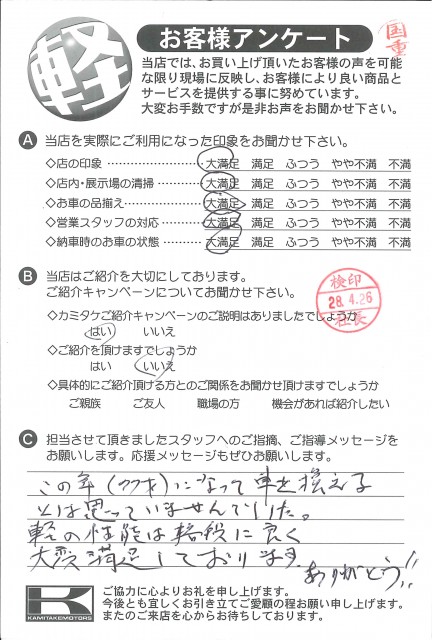 軽
お客様アンケート
国重
当店では、お買い上げ頂いたお客様の声を可能
な限り現場に反映し、お客様により良い商品と
サービスを提供する事に努めています。
大変お手数ですが是非お声をお聞かせ下さい。
A 当店を実際にご利用になった印象をお聞かせ下さい。
◇店の印象 …………………… 大満足 満足 ふつう やや不満 不満
◇店内・展示場の清掃 ………… 大満足 満足 ふつう やや不満 不満
◇お車の品揃え ………………… 大満足 満足 ふつう やや不満 不満
◇営業スタッフの対応 ………… 大満足 満足 ふつう やや不満 不満
◇納車時のお車の状態 ………… 大満足 満足 ふつう やや不満 不満
B 当店はご紹介を大切にしております。
ご紹介キャンペーンについてお聞かせ下さい。
検印
28.4.26
社長
◇カミタケご紹介キャンペーンのご説明はありましたでしょうか
はい いいえ
◇ご紹介を頂けますでしょうか
はい いいえ
◇具体的にご紹介頂ける方とのご関係をお聞かせ頂けますでしょうか
ご親族 ご友人 職場の方 機会があれば紹介したい
C 担当させて頂きましたスタッフへのご指摘、ご指導メッセージを
お願いします。応援メッセージもぜひお願いします。
この年(77才)になって車を換える
とは思っていませんでした。
軽の性能は格段に良く
大変満足しております
ありがとう!!
K
KAMITAKEMOTORS
ご協力に心よりお礼を申し上げます。
今後とも宜しくお引き立てご愛顧の程お願い申し上げます。
またのご来店を心からお待ちしております。